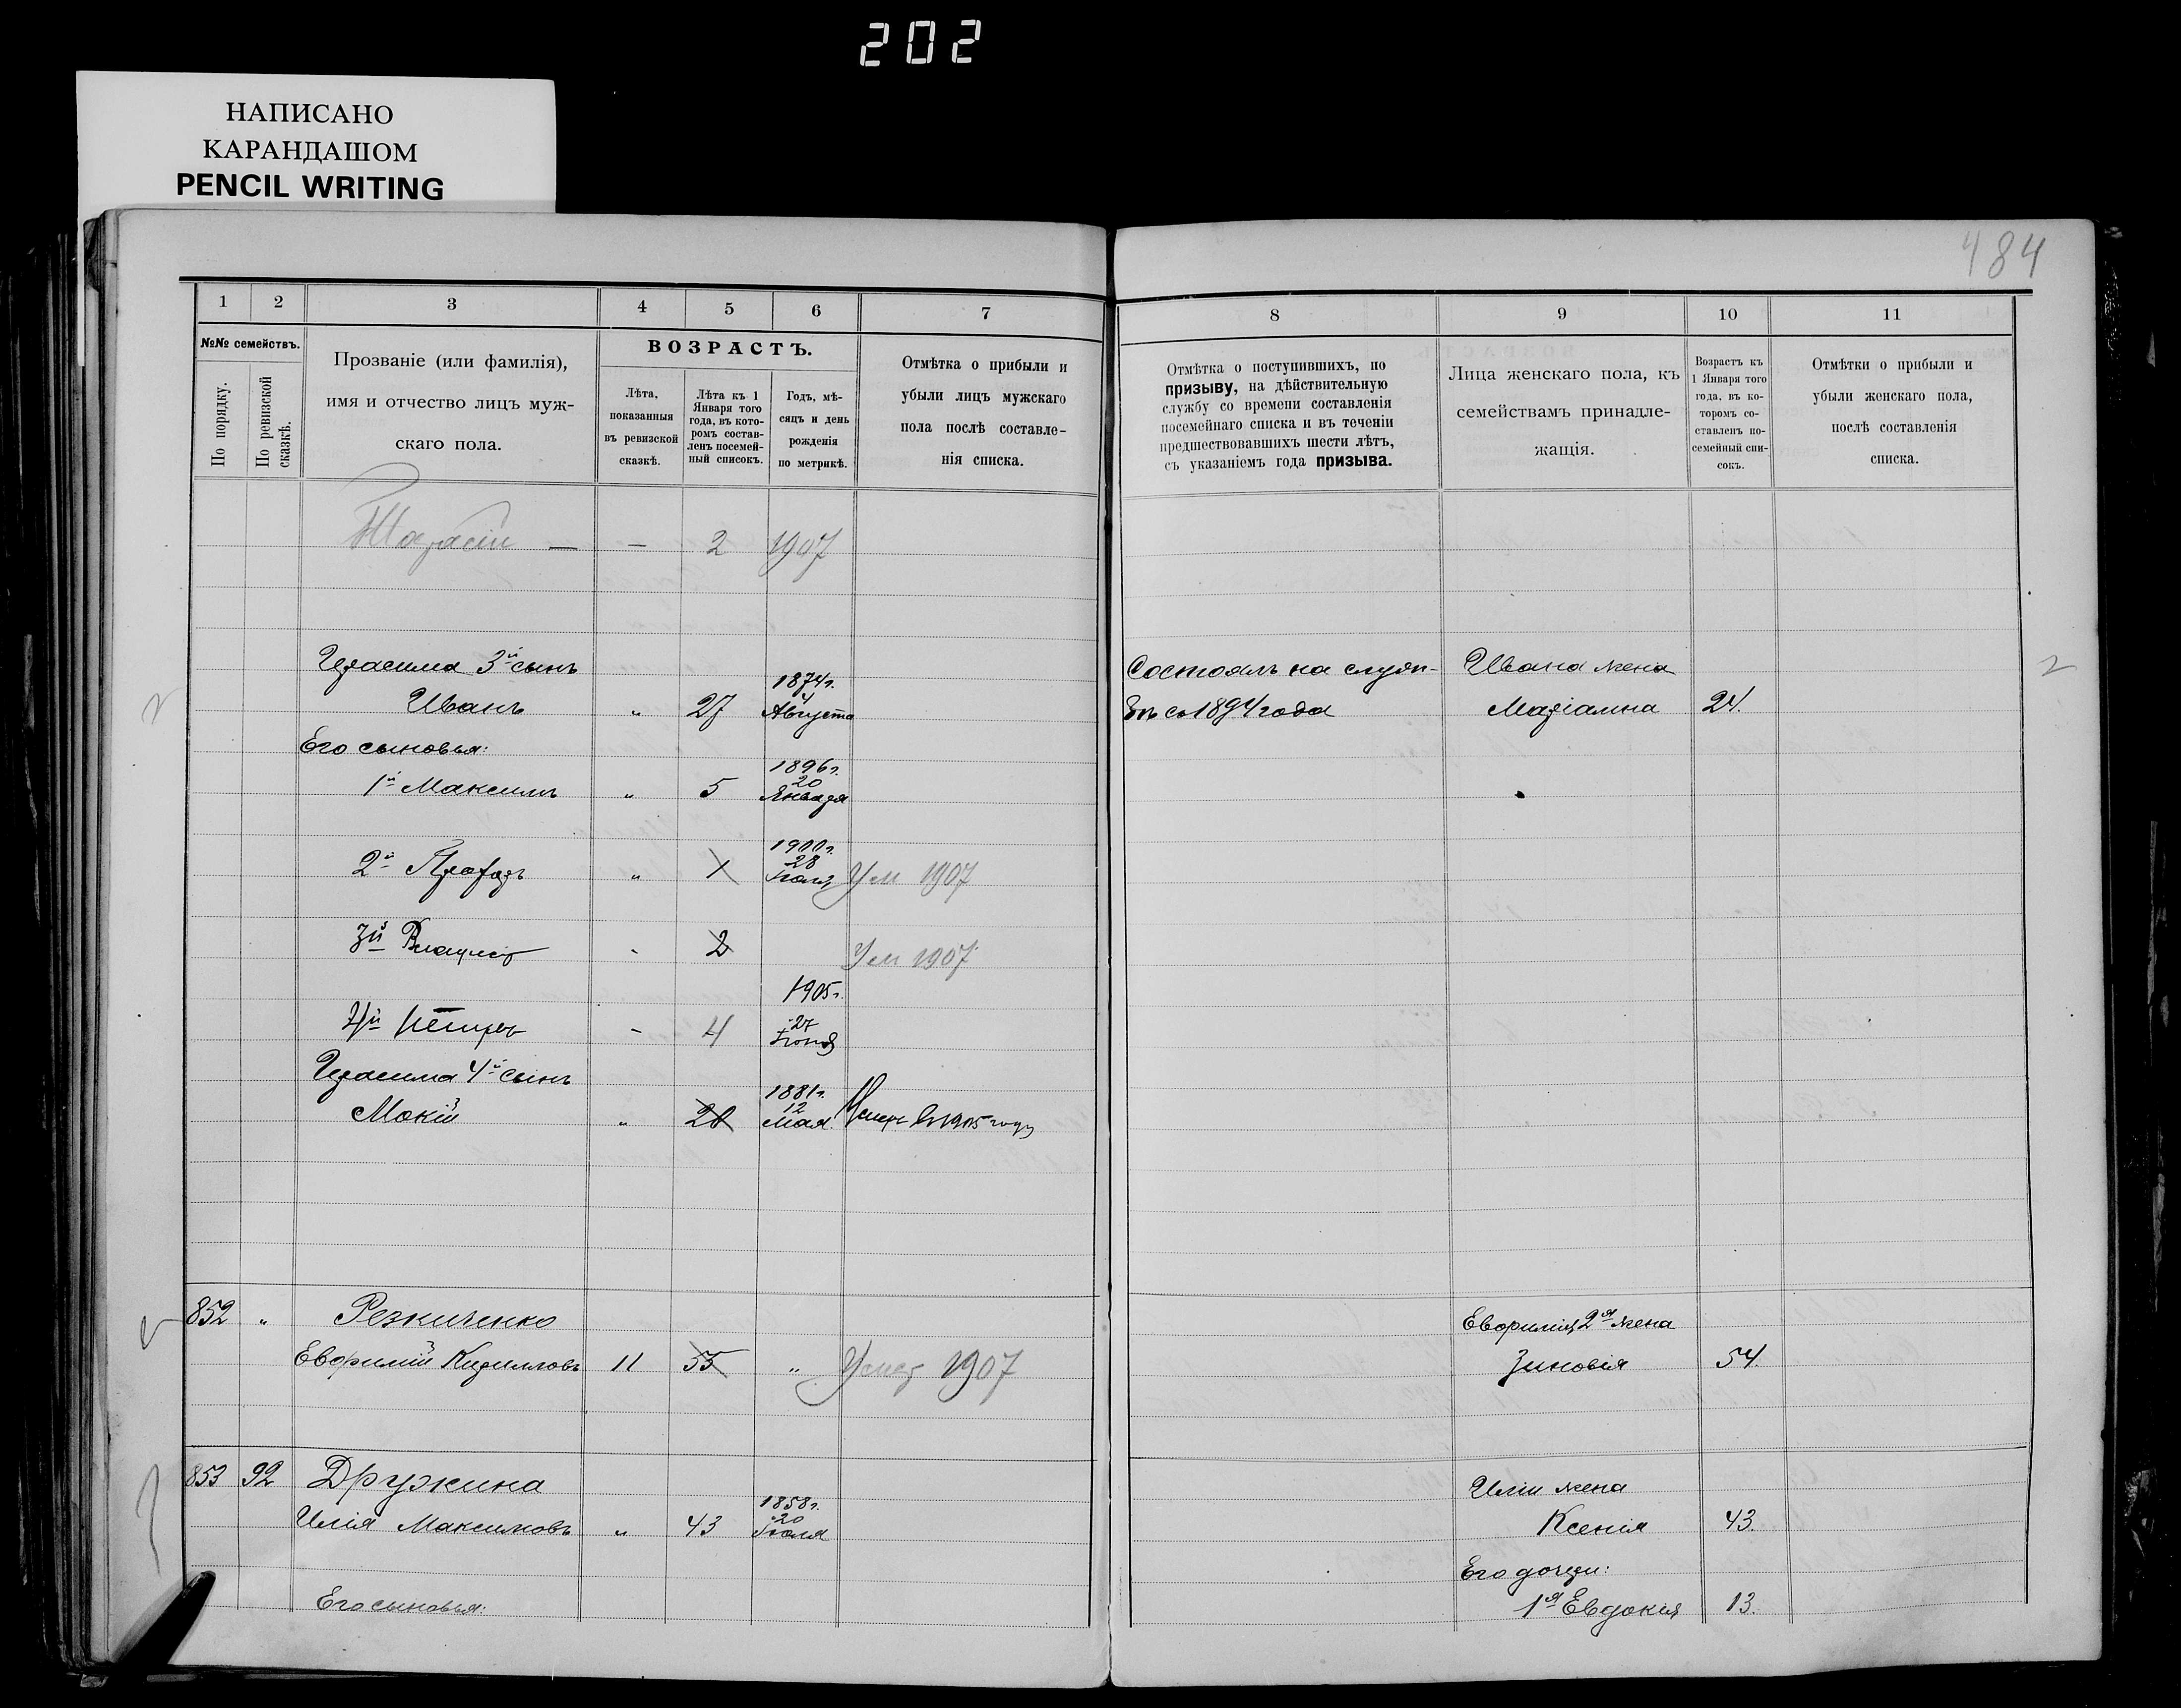 202
НАПИСАНО
КАРАНДАШОМ
PENCIL WRITING
484
1 2 3 4 5 6 7
8 9 10 11
№№ семействъ.
По порядку.
По ревизской сказкѣ.
Прозваніе (или фамилія),
имя и отчество лицъ муж-
скаго пола.
ВОЗРАСТЪ.
Лѣта,
показанныя
въ ревизской
сказкѣ.
Лѣта къ 1
Января того
года, въ кото-
ромъ состав-
ленъ посемей-
ный списокъ.
Годъ, мѣ-
сяцъ и день
рожденія
по метрикѣ.
Отмѣтка о прибыли и
убыли лицъ мужскаго
пола послѣ составле-
нія списка.
Отмѣтка о поступившихъ, по
призыву, на дѣйствительную
службу со времени составленія
посемейнаго списка и въ теченіи
предшествовавшихъ шести лѣтъ,
съ указаніемъ года призыва.
Лица женскаго пола, къ
семействамъ принадле-
жащія.
Возрастъ къ
1 Января того
года, въ ко-
торомъ со-
ставленъ по-
семейный спи-
сокъ.
Отмѣтки о прибыли и
убыли женскаго пола,
послѣ составленія
списка.
— — 2 1907
Герасима 3й сынъ
Состоялъ на служ- Ивана жена
1874 г.
4
Иванъ „ 27 Августа
бѣ съ 1894 года Маріамна 24.
Его сыновья:
1896 г.
20
1й Максимъ „ 5 Января
1900 г.
28
2й „ 1 Іюля Ум 1907
3й - 2 Ум 1907
1905 г.
27
4й Петръ - 4
Герасима 4й сынъ
1881 г.
12
Мокій „ 20 Мая Умеръ въ 1905 году
852 „ Резниченко
Евфимія 2я жена
Евфимій Кирилловъ 11 55 „ Умер 1907
Зиновія 54.
853 92 Дружина
Иліи жена
1858 г.
20
Илія Максимовъ „ 43 Іюля
Ксенія 43.
Его дочери:
Его сыновья:
1я Евдокія 13.